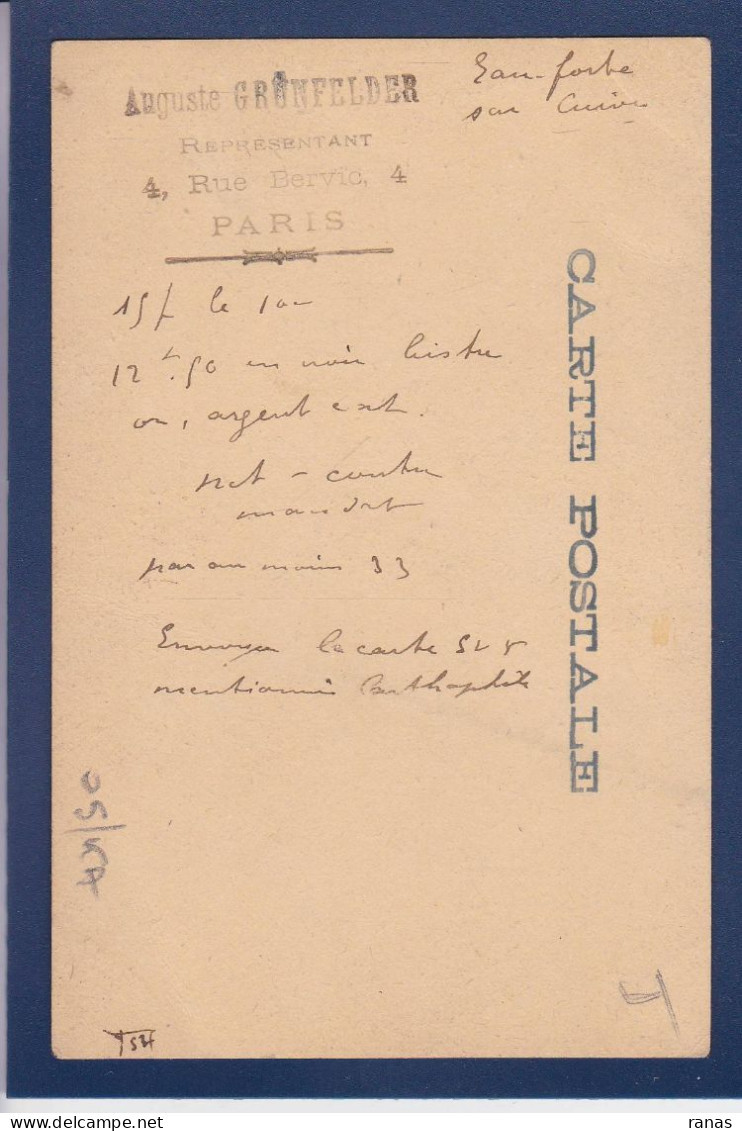 Auguste GRÜNFELDER
REPRESENTANT
4, Rue Bervic, 4
PARIS
Eau-forte
sur Cuivre
CARTE POSTALE
15f le 100
12f.50 en noir bistre
or, argent ext.
net - contre
mandat
par au moins 33
Envoyer la carte
mentionnée
T
ranas